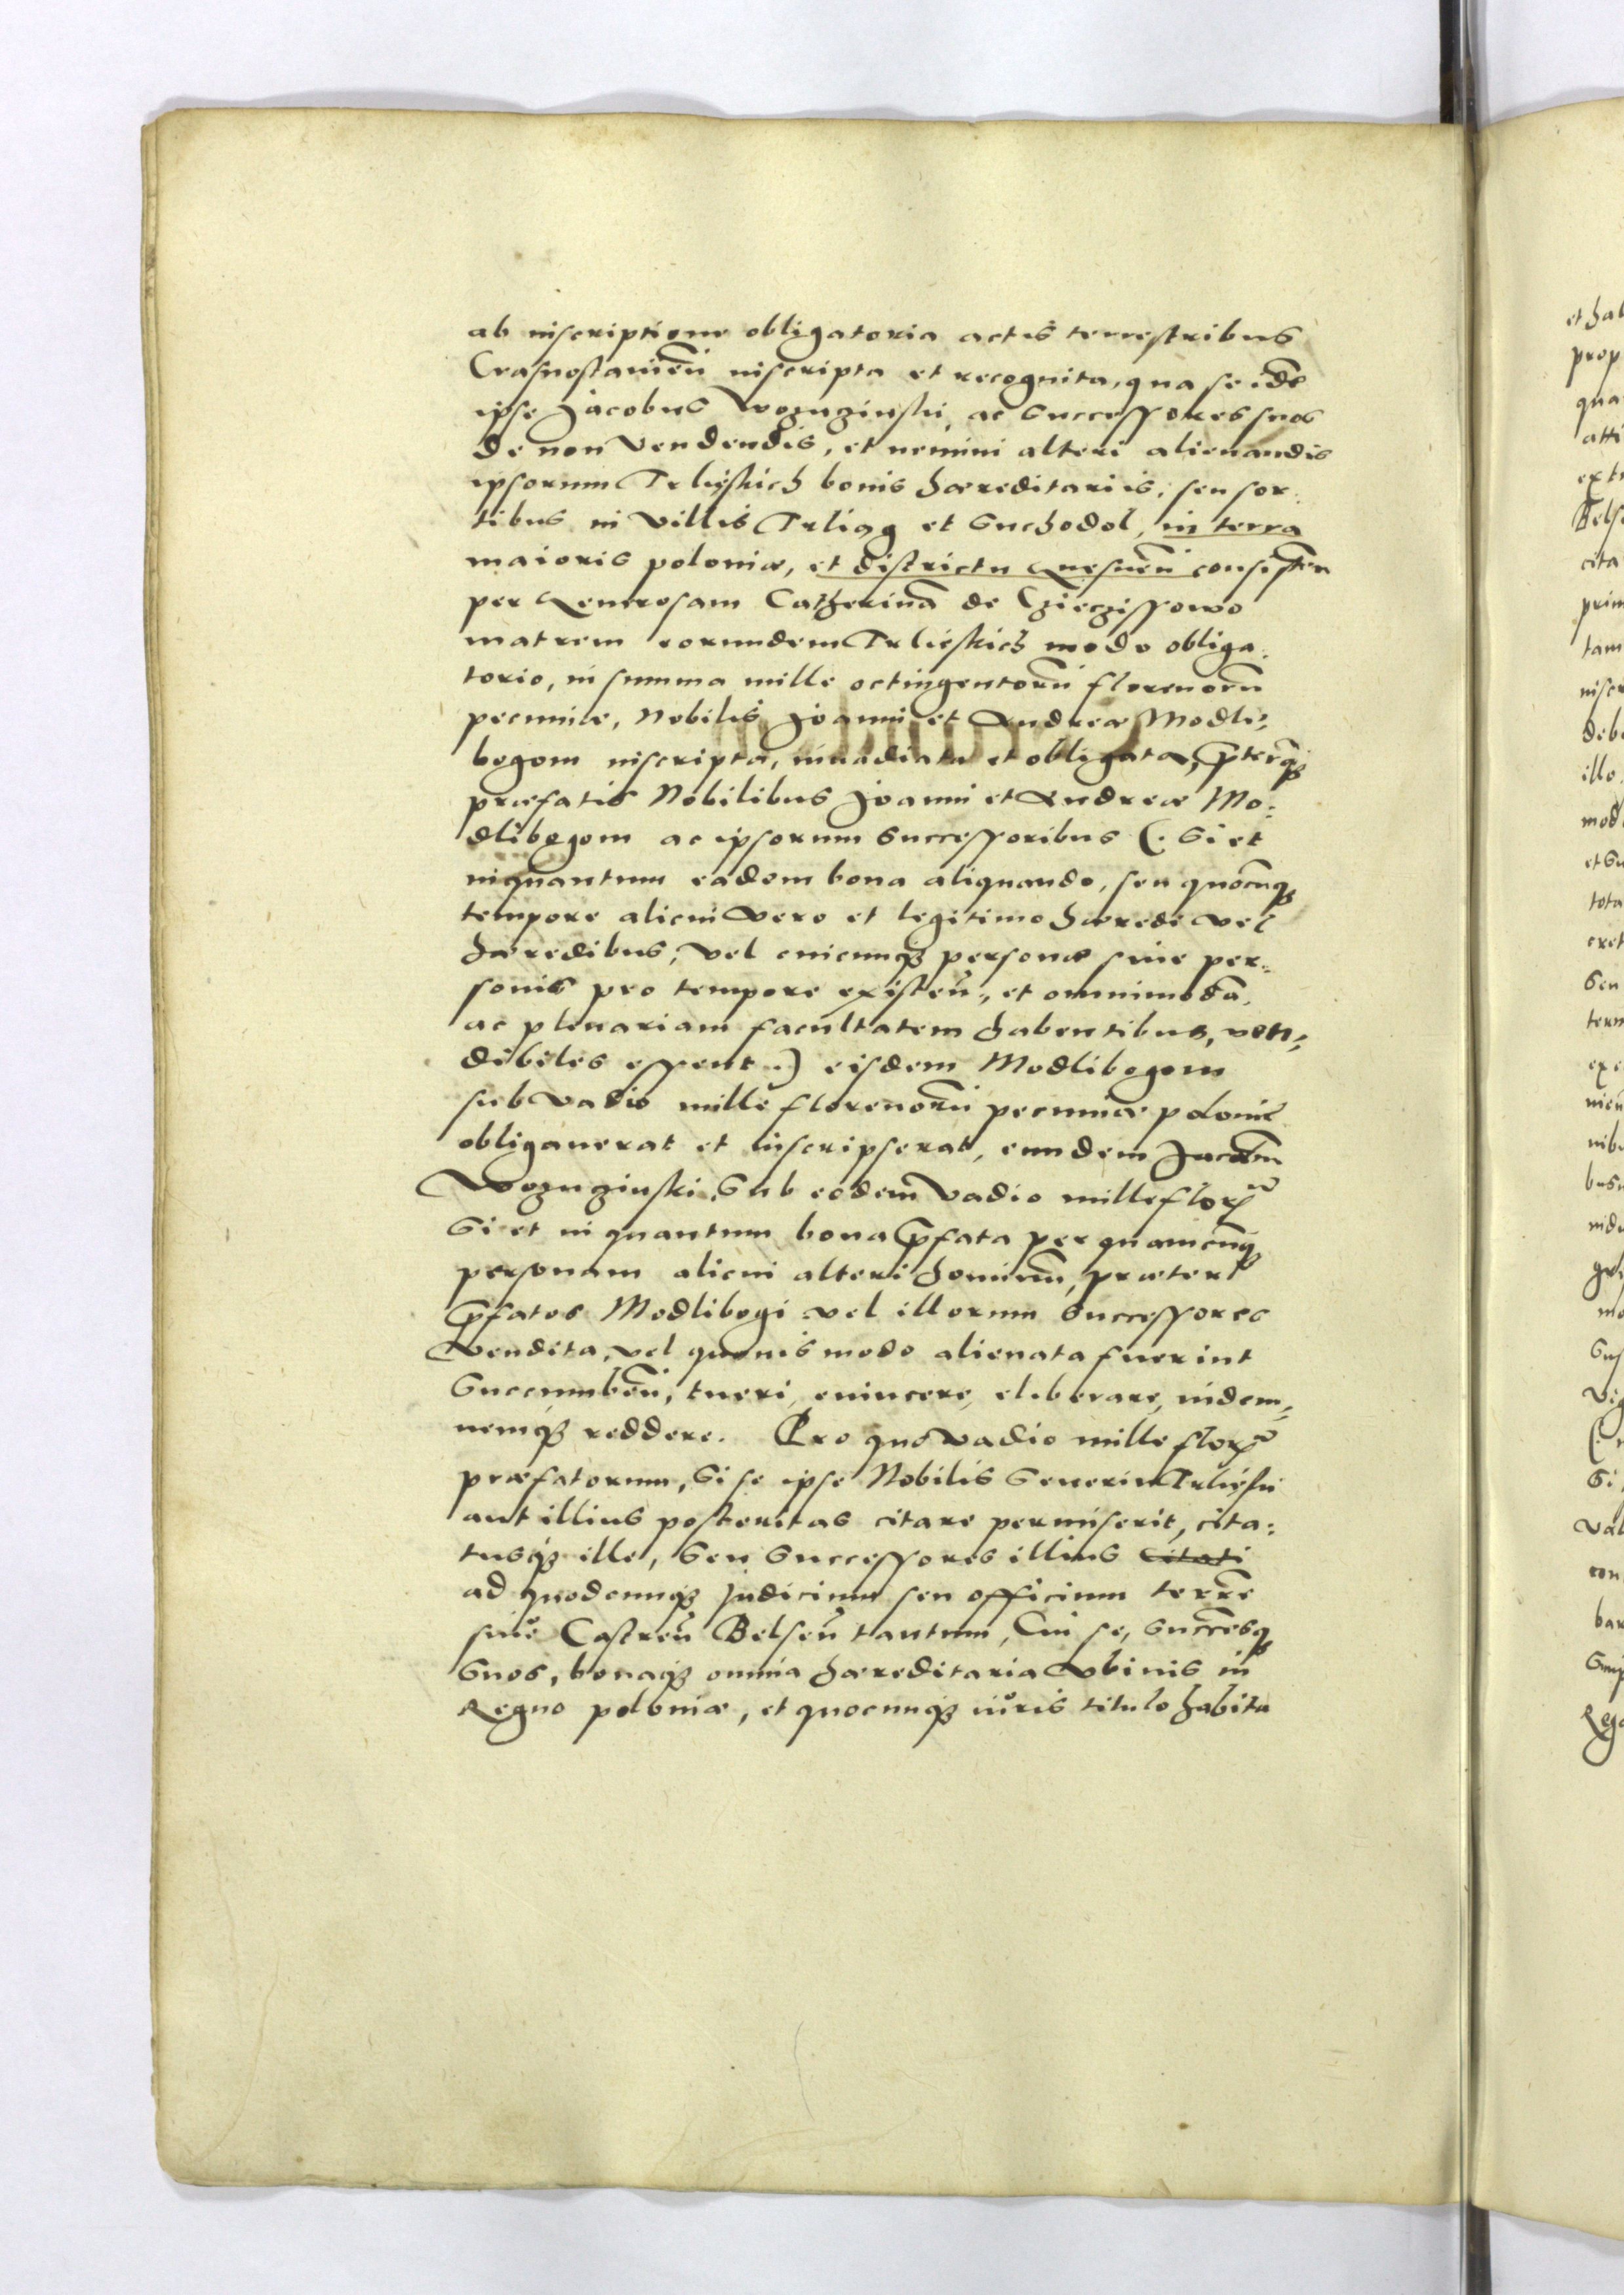 ab inscriptione obligatoria actis terrestribus
Crasnostaviēn inscripta et recognita, qua se idē
ipse Jacobus Wozuzinski, ac Successores suos
de non vendendis, et nemini alteri alienandis
ipsorum Trliskich bonis hæreditariis, seu sor:
tibus in villis Trliąg et Suchodol, in terra
maioris poloniæ, et districtu Gnesnēn consisten
per Generosam Catherinā de
matrem eorundem Trlieskich modo obliga:
torio, in summa mille octingentorū florenorū
pecuniæ, Nobilis Joanni et Andreæ Modli:
bogom inscripta, invadiata et obligata, pterq̃
præfatis Nobilibus Joanni et Andreæ Mo:
dlibogom ac ipsorum Successoribus (. Si et
inquantum eadem bona aliquando, seu quocūq
tempore alicui vero et legitimo hæredi vel
hæredibus, vel cuicunq personæ sive per:
sonis pro tempore existeñ, et omnimodā,
ac plenariam facultatem habentibus, ven:
dibiles essent .) eisdem Modlibogom
sub vadio mille florenorū pecuniæ polonic
obligaverat et inscripserat, eundem Jacobum
Wozuzinski, Sub eodem vadio mille flor
Si et in quantum bona pfata per quamcūq
personam alicui alteri hominū, præter
pfatos Modlibogi vel illorum Successores
Vendita, vel quovis modo alienata fuerint
Succumbeñ, tueri, evincere, eliberare, indem:
nemq reddere. Pro quo vadio mille flor
præfatorum, Si se ipse Nobilis Severin Trliski
aut illius posteritas citare permiserit, cita:
tusq ille, Seu Successores illius Citati
ad quodcunq Judicium seu officium terrē
sive Castreñ Belseñ tantum, Cui se, Succesq
Suos, bonaq omnia hæreditaria ubivis in
Regno poloniæ, et quocunq iuris titulo habita
et hab
prop
qua
atti
extr
Bels
cita
prim
tam
inscr
debe
illo
mod
et Su
tota
cret
Seu
term
exe
nibu
con
bar
Rega